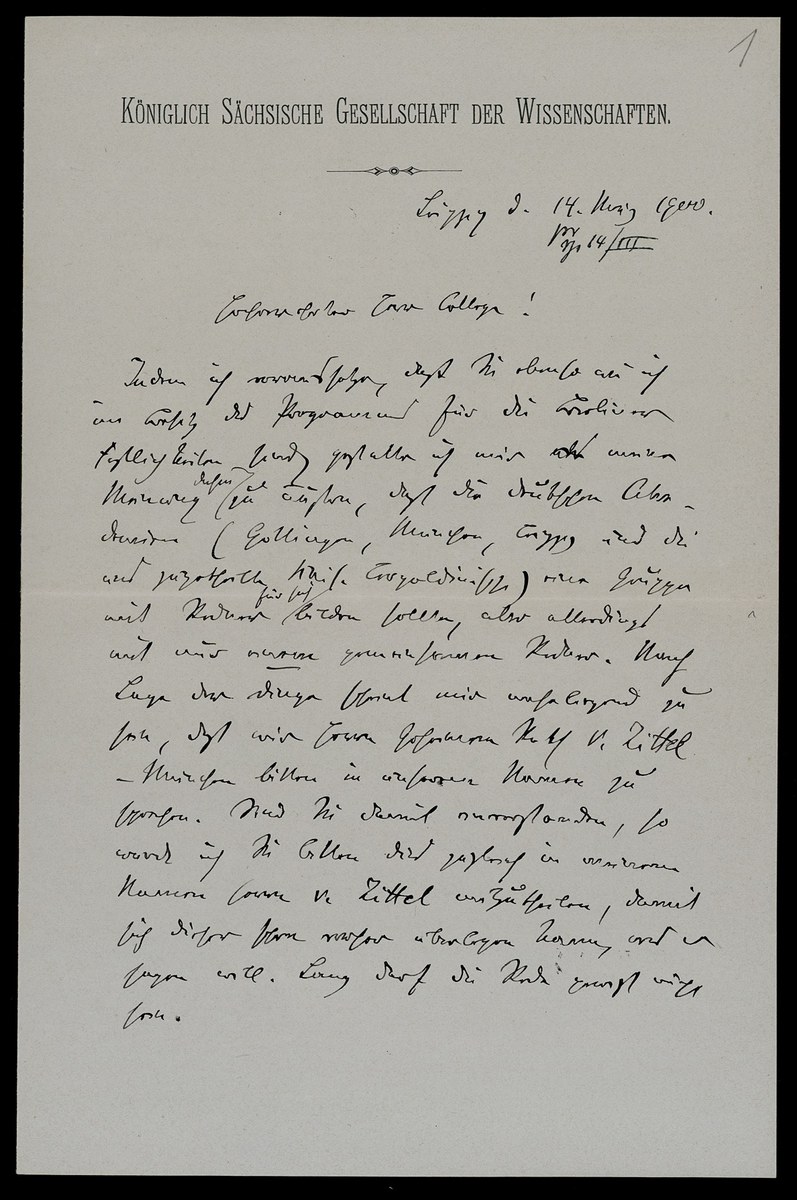 1
KÖNIGLICH SÄCHSISCHE GESELLSCHAFT DER WISSENSCHAFTEN.
Leipzig d. 14. März 1900.
pr 14/III
Hochverehrter Herr College!
Indem ich voraussetze, daß Sie ebenso wie ich
im Besitz des Programms für die Berliner
Festlichkeiten sind, gestatte ich mir meine
Meinung dahin zu äußern, daß die deutschen Aka-
demien (Göttingen, München, Leipzig und die
uns zugetheilte Leopoldinische) eine Gruppe
mit Redner für sich bilden sollten, aber allerdings
mit nur einem gemeinsamen Redner. Nach
Lage der Dinge scheint mir naheliegend zu
sein, daß wir Herrn Geheimen Rath v. Zittel
– München bitten in unserem Namen zu
sprechen. Sind Sie damit einverstanden, so
würde ich Sie bitten dies zugleich in meinem
Namen Herrn v. Zittel mitzutheilen, damit
sich dieser schon vorher überlegen kann, was er
sagen will. Lang darf die Rede gewiß nicht
sein.